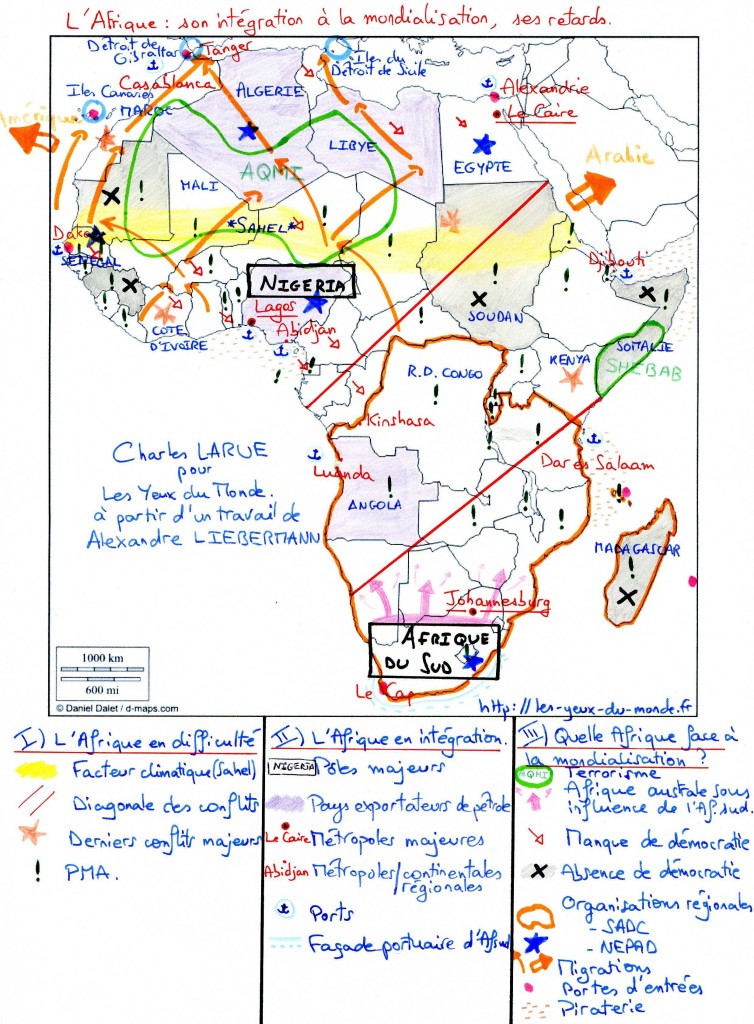 L'Afrique : son intégration à la mondialisation, ses retards.
Détroit de Gibraltar
Tanger
Iles du Détroit de Sicile
Casablanca
Iles Canaries
MAROC
ALGERIE
Alexandrie
Le Caire
Amérique
LIBYE
EGYPTE
Arabie
AQMI
MALI
*SAHEL*
Dakar
SENEGAL
Djibouti
NIGERIA
Lagos
SOUDAN
COTE D'IVOIRE
Abidjan
KENYA
SOMALIE
SHEBAB
R.D. CONGO
Kinshasa
Charles LARUE
pour
Les Yeux du Monde.
à partir d'un travail de
Alexandre LIEBERMANN
Luanda
Dar es Salaam
ANGOLA
MADAGASCAR
Johannesburg
AFRIQUE
DU SUD
Le Cap
1000 km
600 mi
© Daniel Dalet / d-maps.com
http://les-yeux-du-monde.fr
I) L'Afrique en difficulté
Facteur climatique (Sahel)
Diagonale des conflits
Derniers conflits majeurs
PMA.
II) L'Afrique en intégration.
NIGERIA Pôles majeurs
Pays exportateurs de pétrole
Le Caire Métropoles majeures
Abidjan Métropoles/continentales
régionales
Ports
Façade portuaire d'Afsud
III) Quelle Afrique face à
la mondialisation ?
AQMI Terrorisme
Afrique australe sous
influence de l'Af sud.
Manque de démocratie
Absence de démocratie
Organisations régionales
- SADC
- NEPAD
Migrations
Portes d'entrées
Piraterie